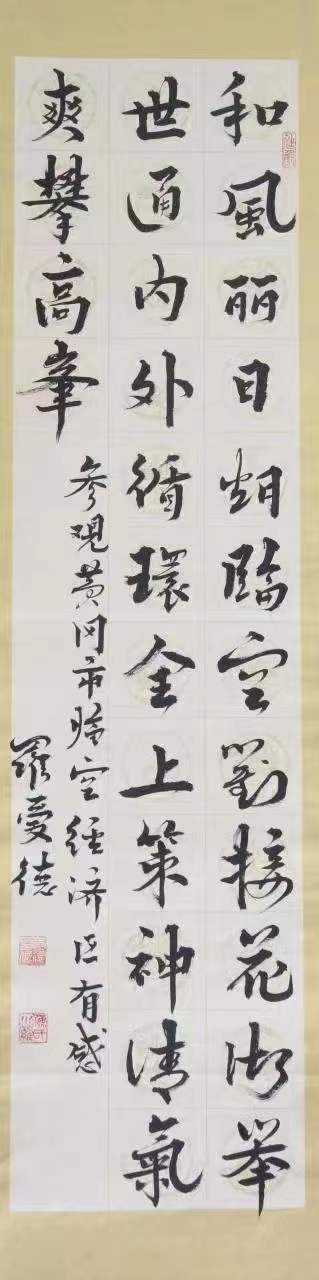 和風丽日臨空對接花湖举
世通内外循環全上策神清氣
爽攀高峯
参观黄冈市臨空經济区有感
羅愛德